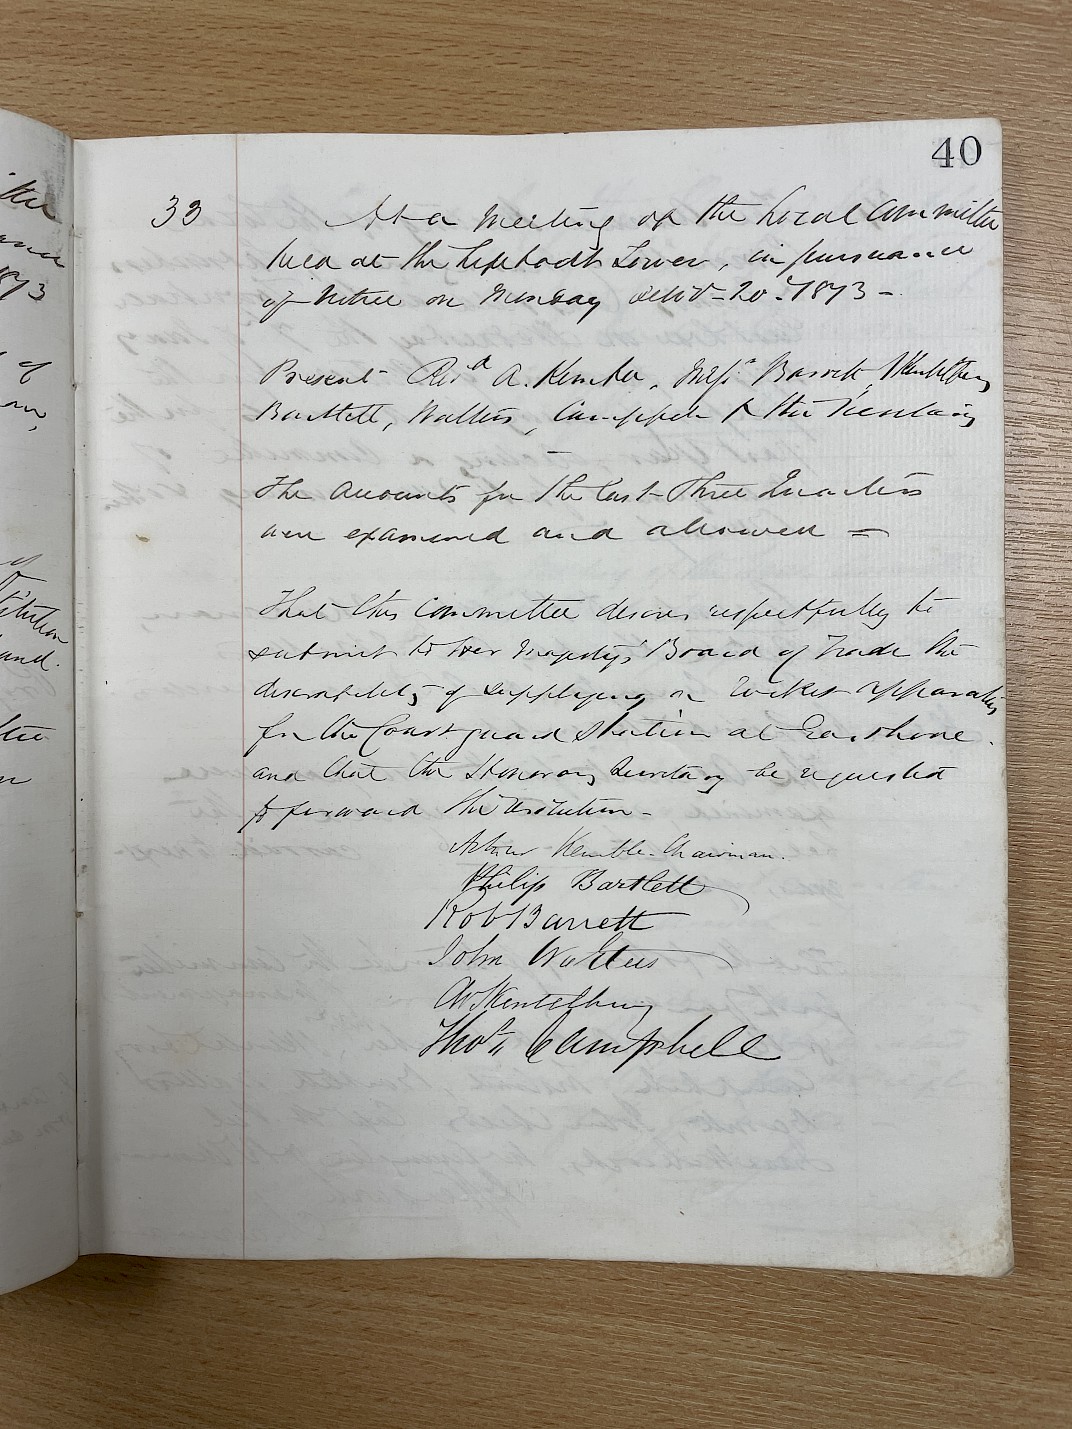 40
33
At a Meeting of the Local Committee
held at the Lifeboat Tower, in pursuance
of Notice on Monday Octob 20. 1873 -
Present Revd A. Kemble, Messrs Barrett,
Bartlett, Walters, Campbell & the Secretary
The Accounts for the last Three Quarters
were examined and allowed =
That this Committee desires respectfully to
submit to Her Majesty's Board of Trade the
desirability of supplying a Rocket apparatus
for the Coast guard Station at
and that the Honorary Secretary be requested
to forward the resolution -
Arthur Kemble Chairman.
Philip Bartlett
Rob Barrett
John Walters
Thos Campbell